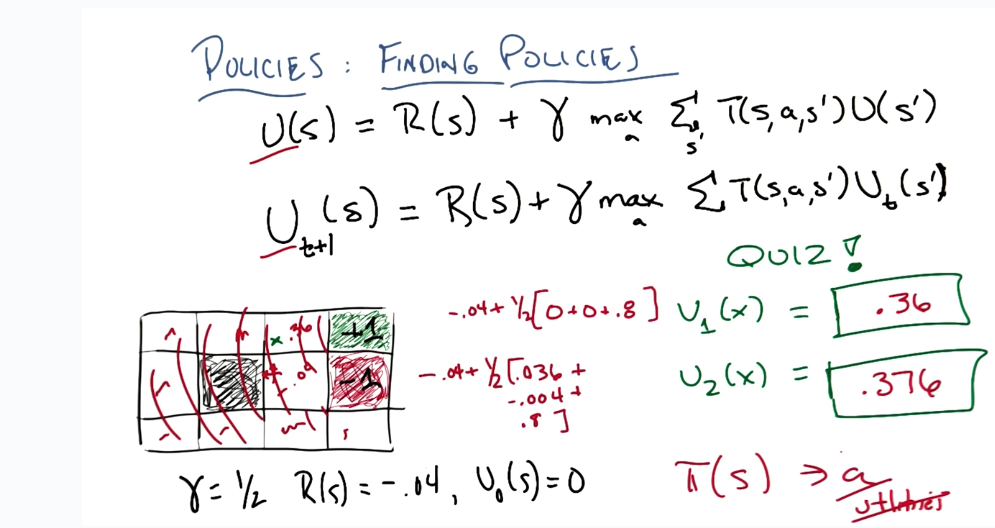 POLICIES : FINDING POLICIES
U(s) = R(s) + γ max_a Σ_s' T(s,a,s')U(s')
U_t+1(s) = R(s) + γ max_a Σ T(s,a,s')U_t(s')
QUIZ!
-.04 + ½[0+0+.8] U₁(x) = .36
x .36 +1
-.04 + ½[.036 +
-.004 +
.8]
U₂(x) = .376
-.04 -1
γ = ½ R(s) = -.04, U₀(s) = 0
π(s) → a
utilities